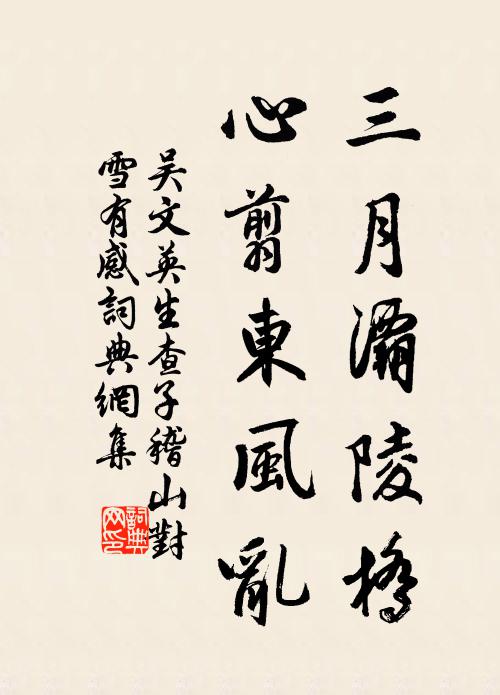 三月灞陵橋
心翦東風亂
吴文英生查子稽山對
雪有感詞典網集
詞典
网印